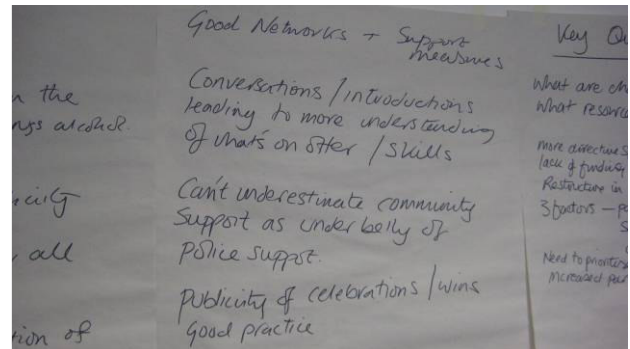 n the
ngs alcohol.
all
ion of
Good Networks + Support
measures
Conversations / introductions
leading to more understanding
of what's on offer / skills
Can't underestimate community
support as underbelly of
police support.
Publicity of celebrations / wins
Good practice
Key Qu
What are ch
What resourc
more directive s
lack of funding
Restructure in
3 factors — p
S
Need to prioritise
Increased par